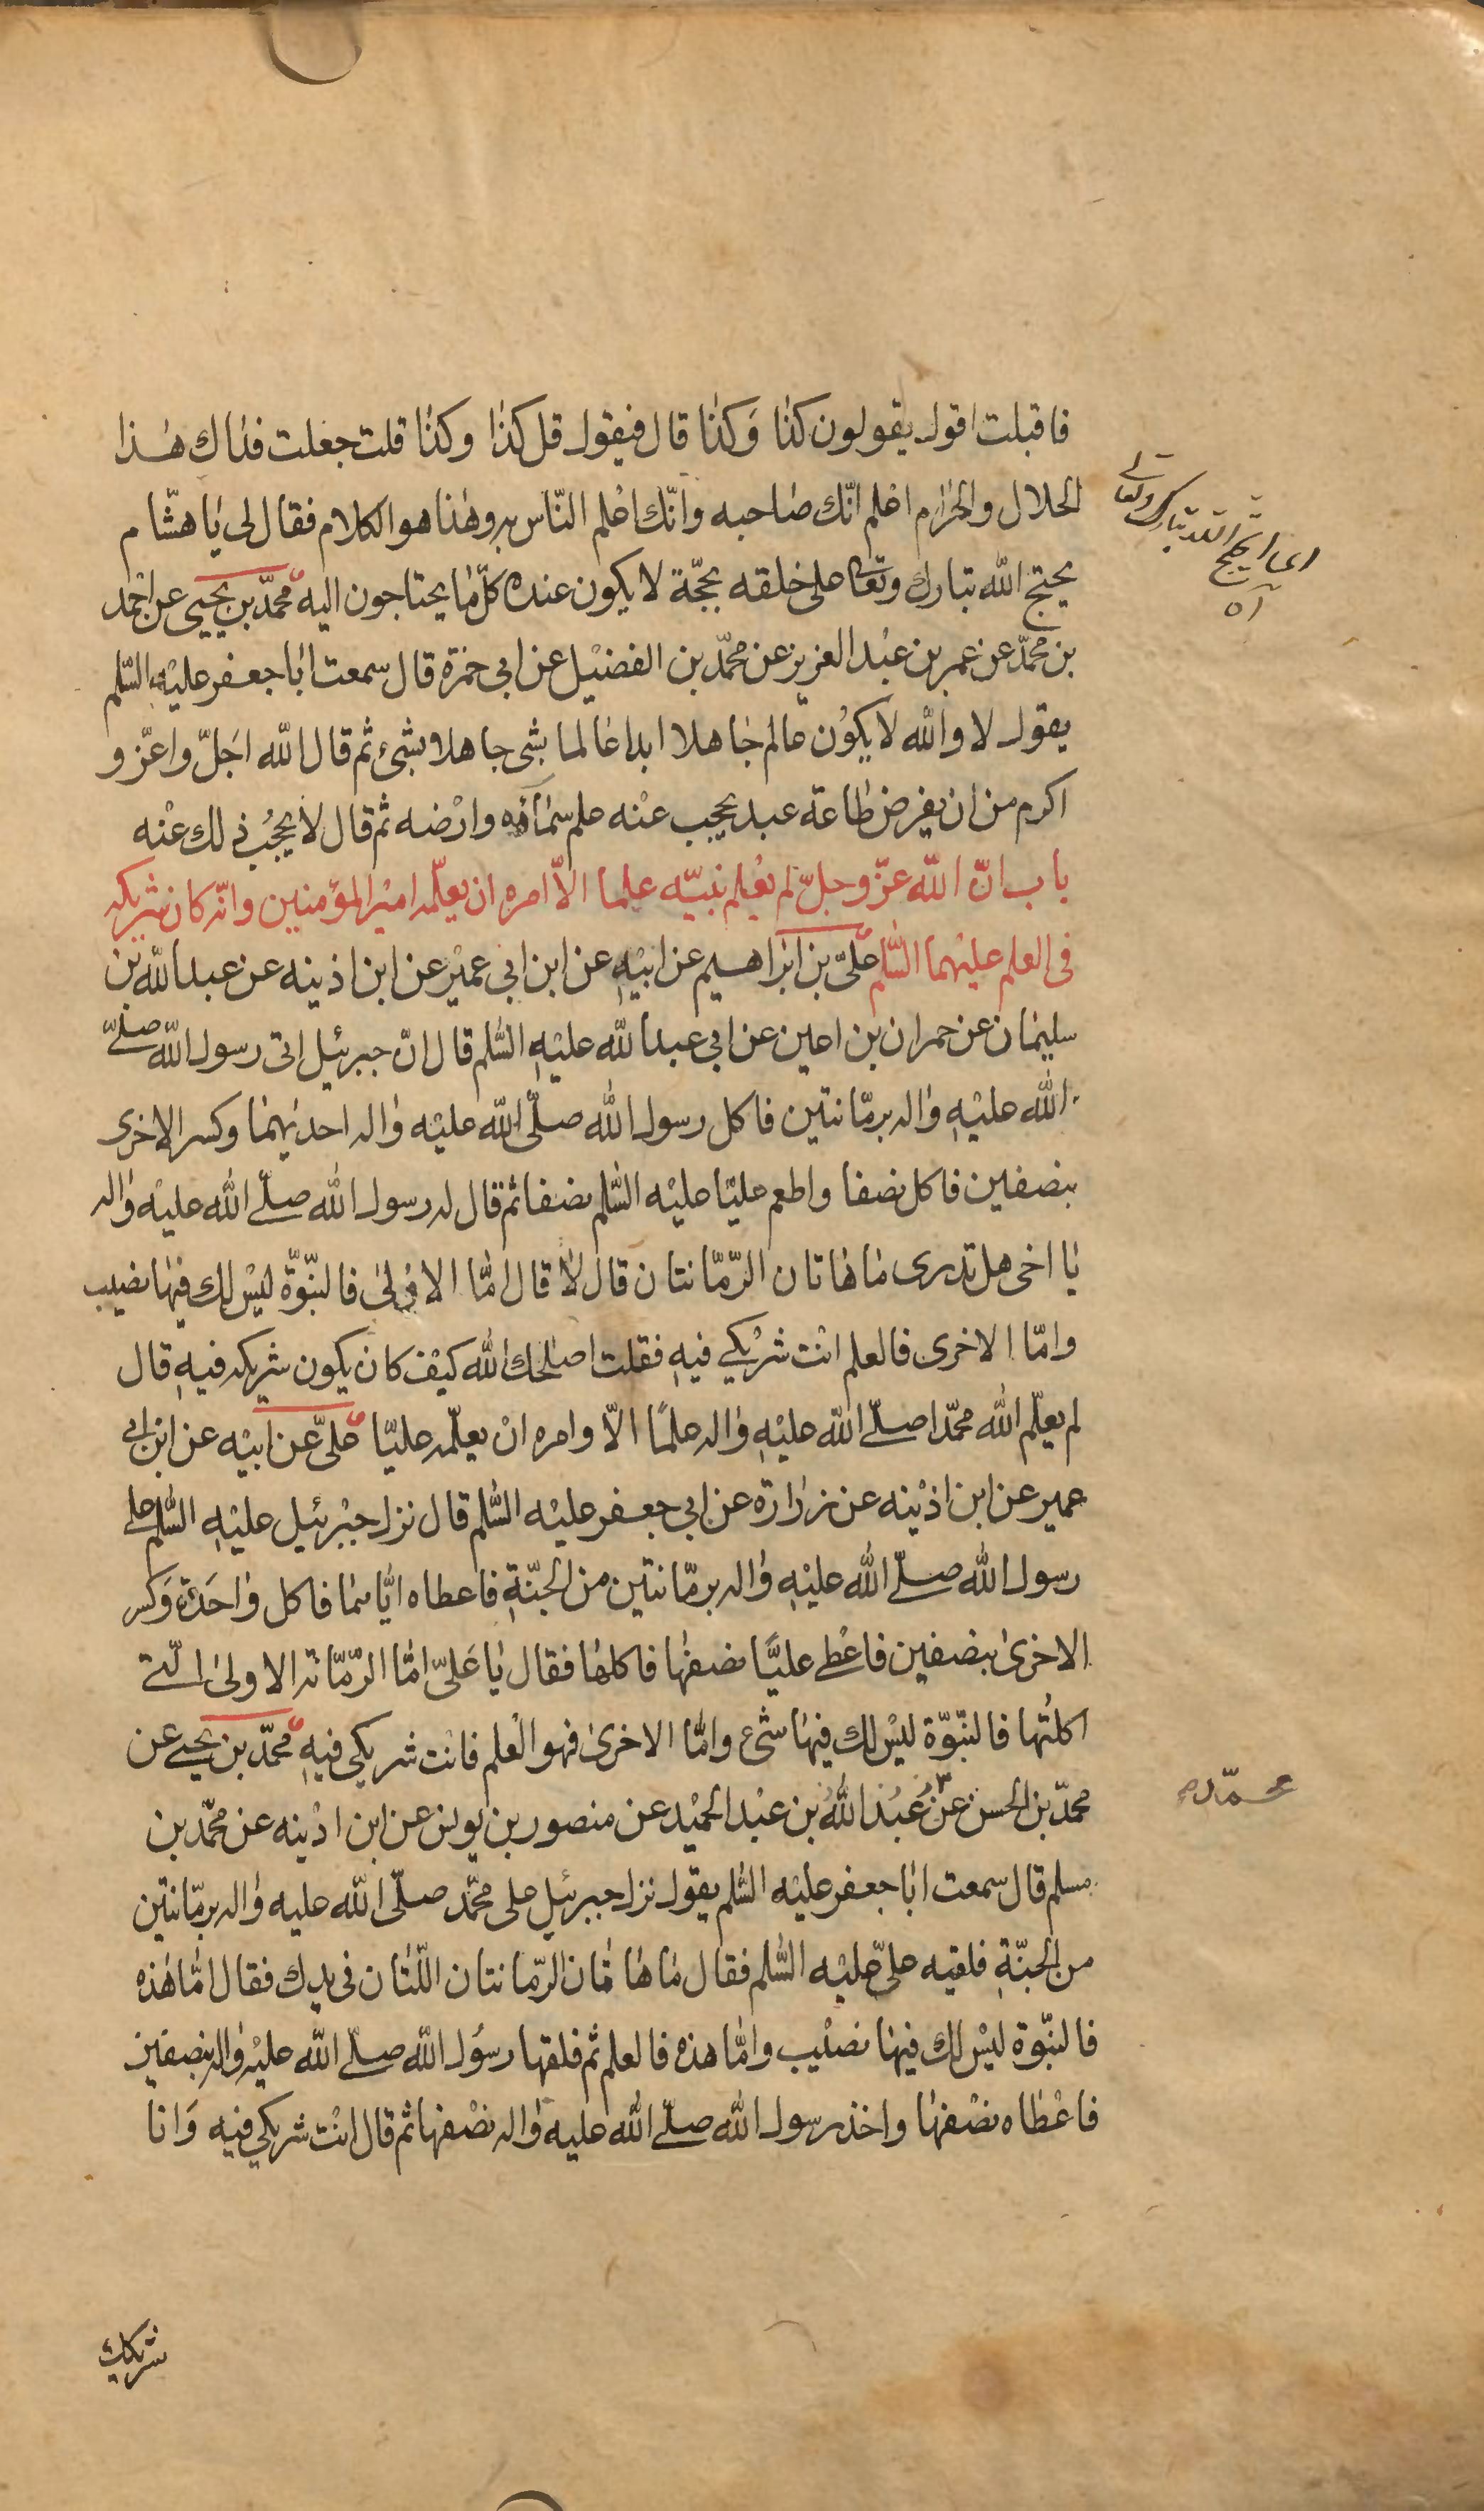 فاقبلت اقول يقولون كذا وكذا قال فيقول قل كذا وكذا قلت جعلت فداك هذا
الحلال والحرام اعلم انّك صاحبه وانّك اعلم النّاس به وهذا هو الكلام فقال لى يا هشام
يحتج الله تبارك وتعا على خلقه بحجّة لا يكون عنده كلّ ما يحتاجون اليه محمّد بن يحيى عن احمد
بن محمّد عن عمر بن عبد العزيز عن محمّد بن الفضيل عن ابى حمزة قال سمعت ابا جعفر عليه السّلم
يقول لا والله لا يكون عالم جاهلا ابدا عالما بشى جاهلا بشىء ثم قال الله اجلّ واعزّ و
اكرم من ان يفرض طاعة عبد يحجب عنه علم سمائه وارضه ثم قال لا يحجب ذلك عنه
باب انّ الله عزّ وجلّ لم يعلم نبيّه علما الّا امره ان يعلّمه امير المؤمنين وانّه كان شريكه
فى العلم عليهما السّلم علىّ بن ابراهيم عن ابيه عن ابن ابى عمير عن ابن اذينه عن عبدالله بن
سليمان عن حمران بن اعين عن ابى عبدالله عليه السّلم قال انّ جبرئيل اتى رسول الله صلّى
الله عليه واله برمّانتين فاكل رسول الله صلّى الله عليه واله احديهما وكسر الاخرى
بنصفين فاكل نصفا واطعم عليّا عليه السّلم نصفا ثم قال له رسول الله صلّى الله عليه واله
يا اخى هل تدرى ما هاتان الرّمّانتان قال لا قال امّا الاولى فالنبّوّة ليس لك فيها نصيب
وامّا الاخرى فالعلم انت شريكى فيه فقلت اصلحك الله كيف كان يكون شريكه فيه قال
لم يعلّم الله محمّدا صلّى الله عليه واله علمًا الّا وامره ان يعلّمه عليّا علىّ عن ابيه عن ابن ابى
عمير عن ابن اذينه عن زرارة عن ابى جعفر عليه السّلم قال نزل جبرئيل عليه السّلم على
رسول الله صلّى الله عليه واله برمّانتين من الجنّة فاعطاه ايّاهما فاكل واحدة وكسر
الاخرى بنصفين فاعطى عليًّا نصفها فاكلها فقال يا علىّ امّا الرّمّانة الاولى الّتى
اكلتها فالنبّوّة ليس لك فيها شىء وامّا الاخرى فهو العلم فانت شريكى فيه محمّد بن يحيى عن
محمّد بن الحسن عن عبد الله بن عبد الحميد عن منصور بن يونس عن ابن اذينه عن محمّد بن
مسلم قال سمعت ابا جعفر عليه السّلم يقول نزل جبرئيل على محمّد صلّى الله عليه واله برمّانتين
من الجنّة فلقيه علىّ عليه السّلم فقال ما هاتان الرّمانتان اللّتان فى يدك فقال امّا هذه
فالنبّوة ليس لك فيها نصيب وامّا هذه فالعلم ثم فلقها رسول الله صلّى الله عليه واله بنصفين
فاعطاه نصفها واخذ رسول الله صلّى الله عليه واله نصفها ثم قال انت شريكى فيه وانا
شريكك
الله تبارك وتعالى
محمّد